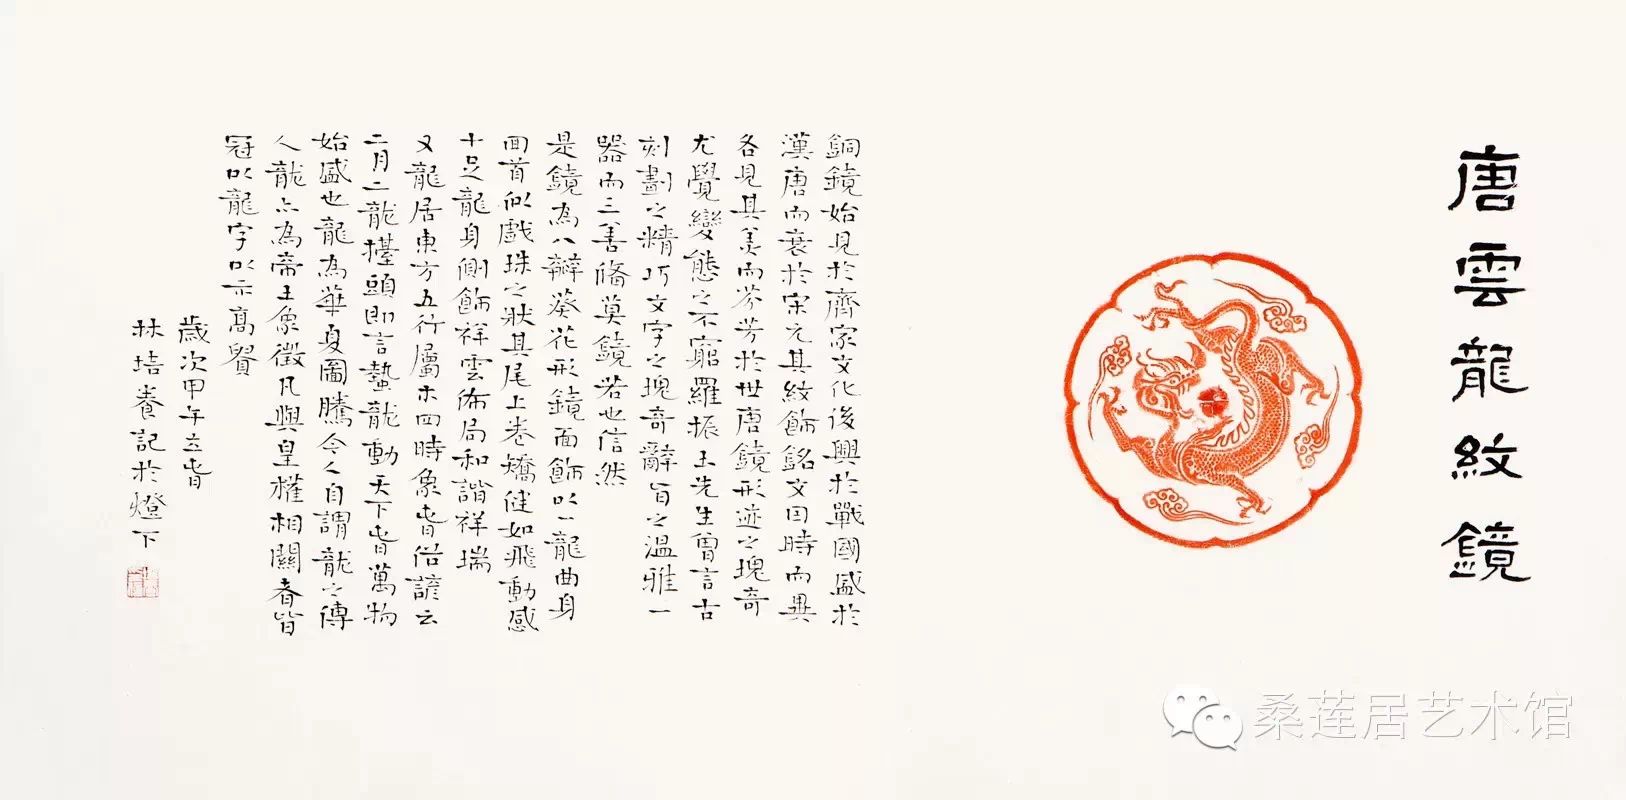 唐雲龍紋鏡
銅鏡始見於齊家文化後興於戰國盛於
漢唐而衰於宋元其紋飾銘文因時而異
各見其美而芬芳於世唐鏡形迹之瑰奇
尤覺變態之不窮羅振玉先生曾言古
刻劃之精巧文字之瑰奇辭旨之溫雅一
器而三善備莫鏡若也信然
是鏡為八瓣葵花形鏡面飾以一龍曲身
回首似戲珠之狀其尾上卷矯健如飛動感
十足龍身側飾祥雲佈局和諧祥瑞
又龍居東方五行屬木四時象旾俗諺云
二月二龍擡頭即言蟄龍動天下旾萬物
始盛也龍為華夏圖騰今人自謂龍之傳
人龍亦為帝王象徵凡與皇權相關者皆
冠以龍字以示高貴
歲次甲午立旾
林培養記於燈下
桑莲居艺术馆